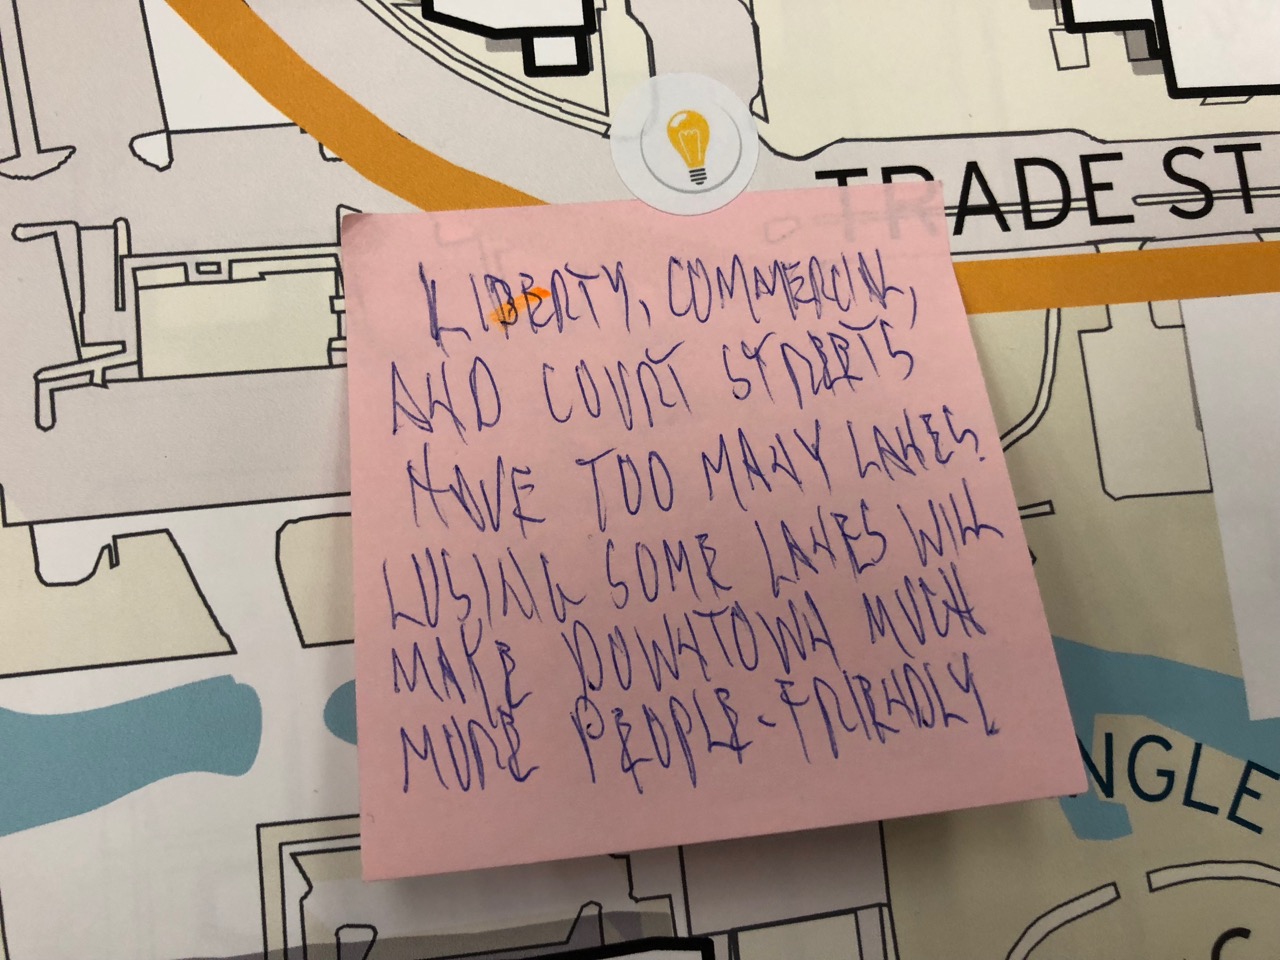 TRADE ST
LIBERTY, COMMERCIAL,
AND COURT STREETS
HAVE TOO MANY LANES.
LOSING SOME LANES WILL
MAKE DOWNTOWN MUCH
MORE PEOPLE-FRIENDLY
NGLE